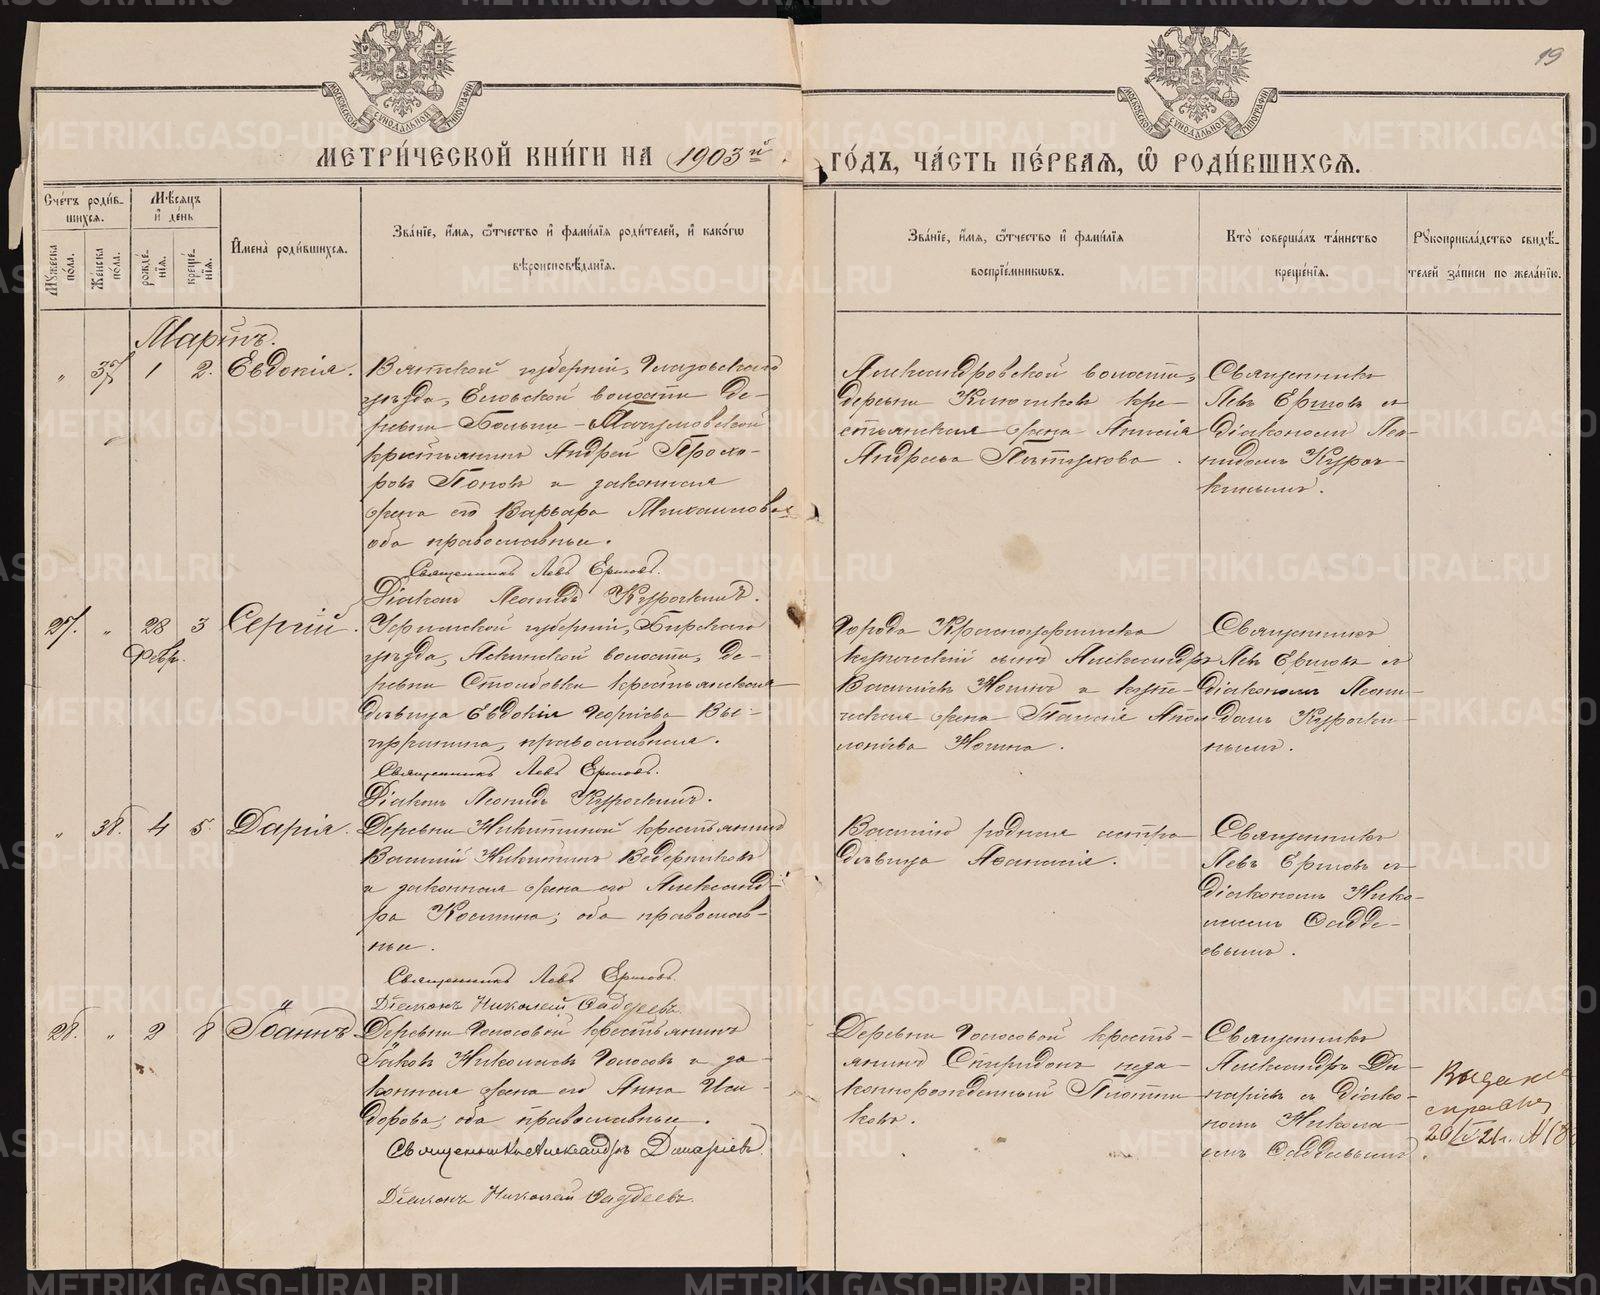 19
МЕТРИ́ЧЕСКОЙ КНИ́ГИ НА 1903й ГО́ДЪ, ЧА́СТЬ ПЕ́РВАЯ, Ѡ҆ РОДИ́ВШИХСЯ.
Сче́тъ роди́вшихся.
Мѣсяцъ и҆ де́нь
И҆мена̀ роди́вшихся.
Зва́нїе, и҆́мя, ѻ҆́тчество и҆ фами́лїя роди́телей, и҆ како́гѡ
вѣроисповѣ́данїя.
Зва́нїе, и҆́мя, ѻ҆́тчество и҆ фами́лїя
воспрїе́мникѡвъ.
Кто̀ соверша́лъ та́инство
креще́нїя.
Рꙋкоприкла́дство свидѣ́-
телей за́писи по жела́нїю.
Мꙋ́жеска по́ла.
Же́нска по́ла.
рожде́-
нїя.
креще́-
нїя.
Мартъ.
1
2.
Евдокія.
Вятской губерніи, Глазовскаго
уѣзда, Еловской волости де-
ревни
крестьянинъ Андрей Прохо-
ровъ Поповъ и законная
жена его Варвара Михаиловна
оба православные.
Священникъ Левъ Ершовъ.
Діаконъ Леонидъ Курочкинъ.
Александровской волости,
деревни Ключиковъ кре-
стьянская жена Анисія
Андреева Пѣтухова.
Священникъ
Левъ Ершовъ съ
діакономъ Лео-
нидомъ Куроч-
кинымъ.
27.
"
28
Февр.
3
Сергій.
Уфимской губерніи, Бирскаго
уѣзда, Аскинской волости, де-
ревни Столбовки крестьянская
дѣвица Евдокія Георгіева
православная.
Священникъ Левъ Ершовъ.
Діаконъ Леонидъ Курочкинъ.
Города Красноуфимска
купеческій сынъ Александръ
Васильевъ и купе-
ческая жена
Священникъ
Левъ Ершовъ съ
діакономъ Леони-
домъ Курочки-
нымъ.
"
38.
4
5.
Дарія.
Деревни Никитиной крестьянинъ
Василій Никитинъ Ведерниковъ
и законная жена его Александ-
ра Космина; оба православ-
ные.
Священникъ Левъ Ершовъ.
Діаконъ Николай Ѳаддеевъ.
Василію родная сестра
дѣвица Аѳанасія.
Священникъ
Левъ Ершовъ съ
діакономъ Нико-
лаемъ Ѳадде-
евымъ.
28.
"
2
8
Іоаннъ
Деревни Голосовой крестьянинъ
Іаковъ Николаевъ Голосовъ и за-
конная жена его Анна Иси-
дорова; оба православные.
Священникъ Александръ Динаріевъ.
Діаконъ Николай Ѳаддеевъ.
Деревни Голосовой кресть-
янинъ Спиридонъ неза-
коннорожденный Плотни-
ковъ.
Священникъ
Александръ Ди-
наріевъ съ діако-
номъ Никола-
емъ Ѳаддеевымъ.
Выдана
справка